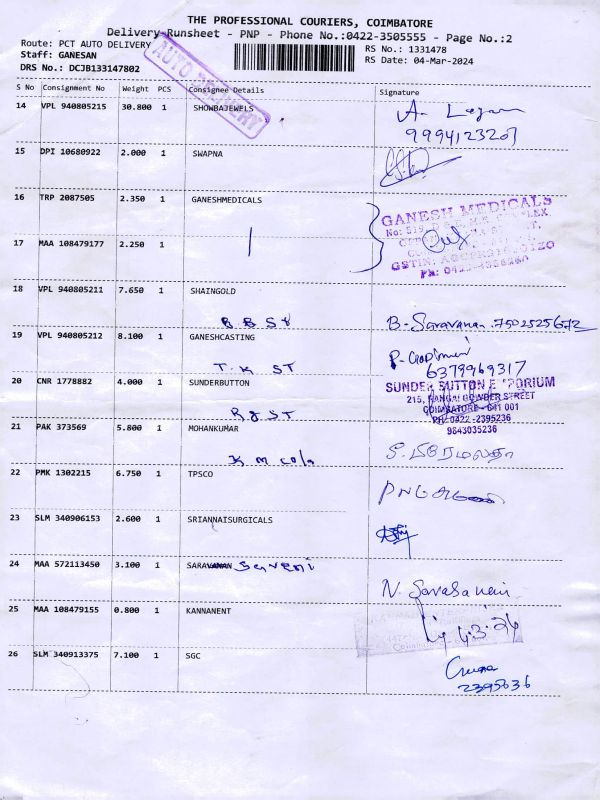 THE PROFESSIONAL COURIERS, COIMBATORE
Delivery Runsheet - PNP - Phone No.:0422-3505555 - Page No.:2
Route: PCT AUTO DELIVERY
RS No.: 1331478
Staff: GANESAN
RS Date: 04-Mar-2024
DRS No.: DCJB133147802
AUTO DELIVERY
S No Consignment No Weight PCS Consignee Details Signature
14 VPL 940805215 30.800 1 SHOWBAJEWELS
9994123207
15 DPI 10680922 2.000 1 SWAPNA
16 TRP 2087505 2.350 1 GANESHMEDICALS
GANESH MEDICALS
17 MAA 108479177 2.250 1
18 VPL 940805211 7.650 1 SHAINGOLD
B B St B. Saravanan. 7502525672
19 VPL 940805212 8.100 1 GANESHCASTING
T.K ST 6379969317
20 CNR 1778882 4.000 1 SUNDERBUTTON
SUNDER BUTTON EMPORIUM
215, RANGAI GOWDER STREET
COIMBATORE - 641 001
PH: 0422-2395236
9843035236
R G ST
21 PAK 373569 5.800 1 MOHANKUMAR
K m cola
22 PMK 1302215 6.750 1 TPSCO
23 SLM 340906153 2.600 1 SRIANNAISURGICALS
24 MAA 572113450 3.100 1 SARAVANAN
25 MAA 108479155 0.800 1 KANNANENT
4.3.24
26 SLM 340913375 7.100 1 SGC
2395636